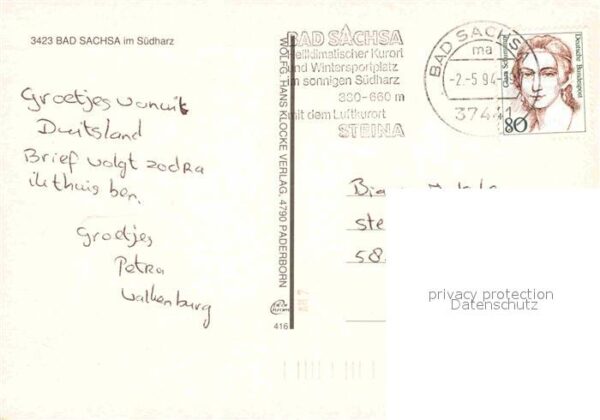 3423 BAD SACHSA im Südharz
Groetjes vanuit
Duitsland
Brief volgt zodra
ik thuis ben.
Groetjes
Petra
Walkenburg
WOLFG. HANS KLOCKE VERLAG, 4790 PADERBORN
416
BAD SACHSA
Heilklimatischer Kurort
und Wintersportplatz
im sonnigen Südharz
330-660 m
mit dem Luftkurort
STEINA
BAD SACHSA
ma
-2.-5.94-
37441
Deutsche Bundespost
80
ste
58
privacy protection
Datenschutz